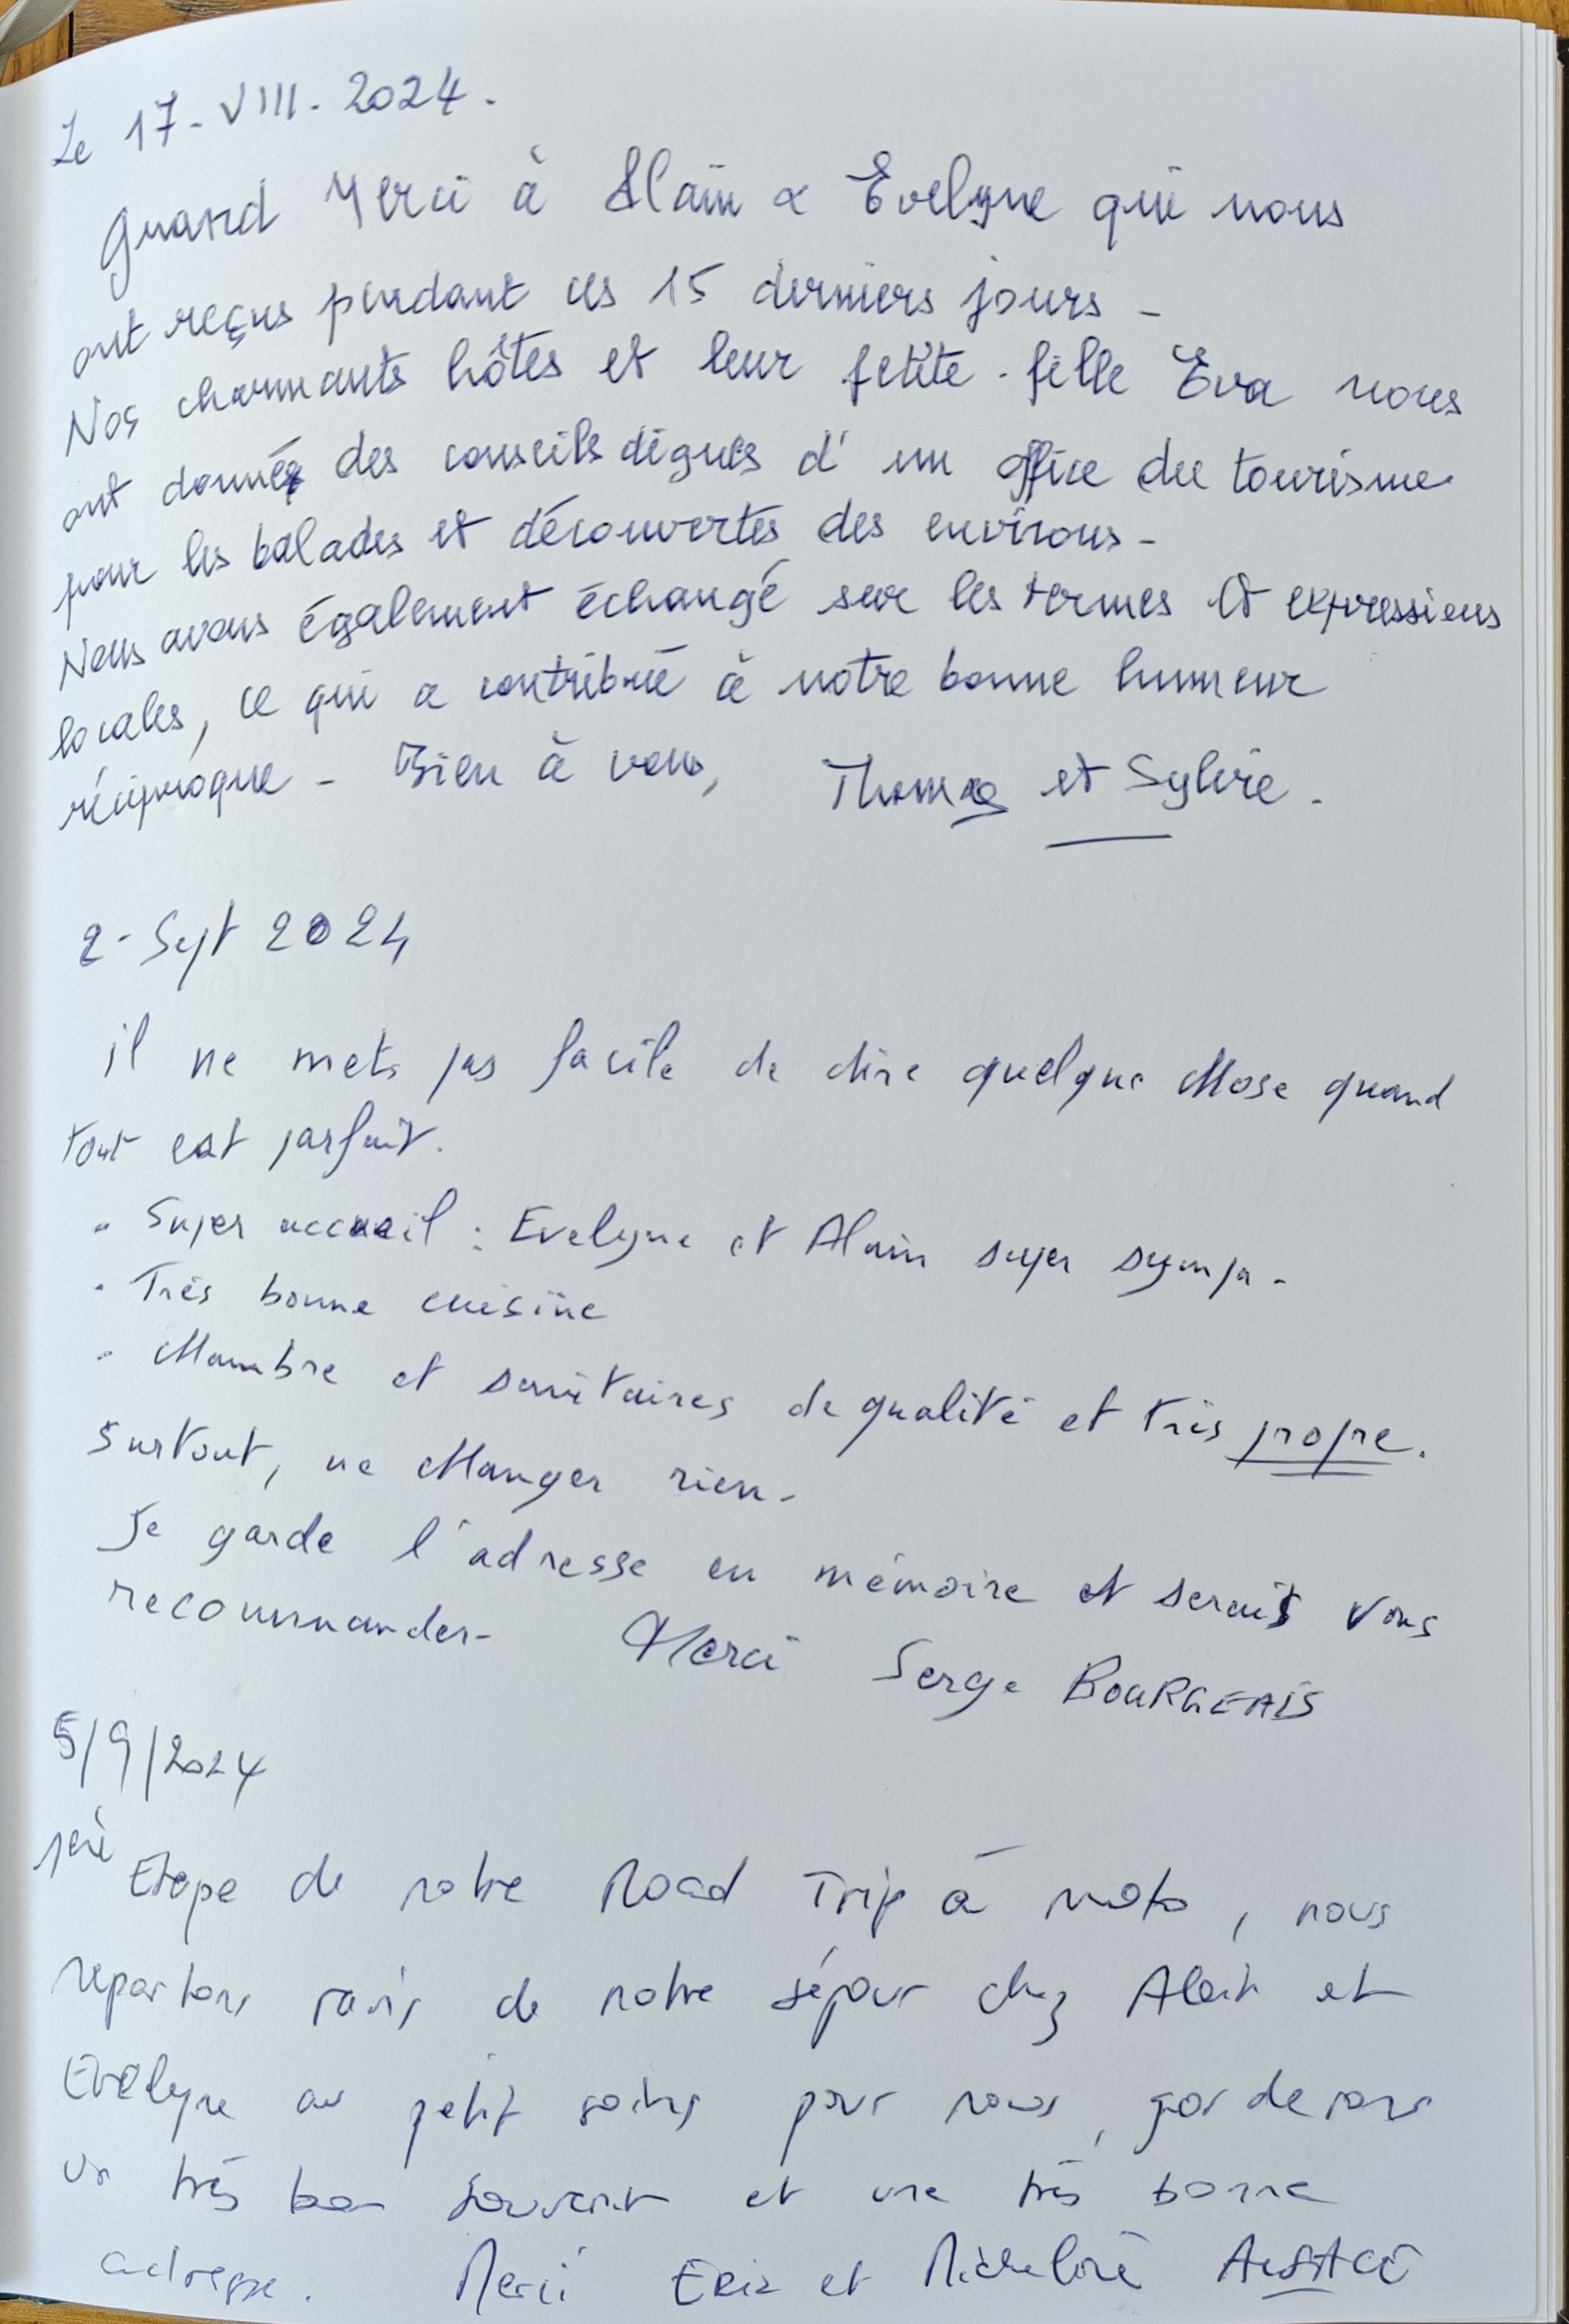 Le 17-VIII-2024.
Grand Merci à Alain & Evelyne qui nous
ont reçus pendant ces 15 derniers jours -
Nos charmants hôtes et leur petite-fille Eva nous
ont donné des conseils dignes d'un office du tourisme
pour les balades et découvertes des environs -
Nous avons également échangé sur les termes et expressions
locales, ce qui a contribué à notre bonne humeur
réciproque - Bien à vous, Thomas et Sylvie.
2-Sept 2024
il ne mets pas facile de dire quelque chose quand
tout est parfait.
- Super accueil : Evelyne et Alain super sympa -
- Très bonne cuisine
- chambre et sanitaires de qualité et très propre.
Surtout, ne changer rien -
Je garde l'adresse en mémoire et serais vous
recommander - Merci Serge BOURGEAIS
5/9/2024
1ère Etape de notre Road Trip à moto, nous
repartons ravis de notre séjour chez Alain et
Evelyne au petit soins pour nous, garderons
un très bon souvenir et une très bonne
adresse. Merci Eric et Micheline ALSACE